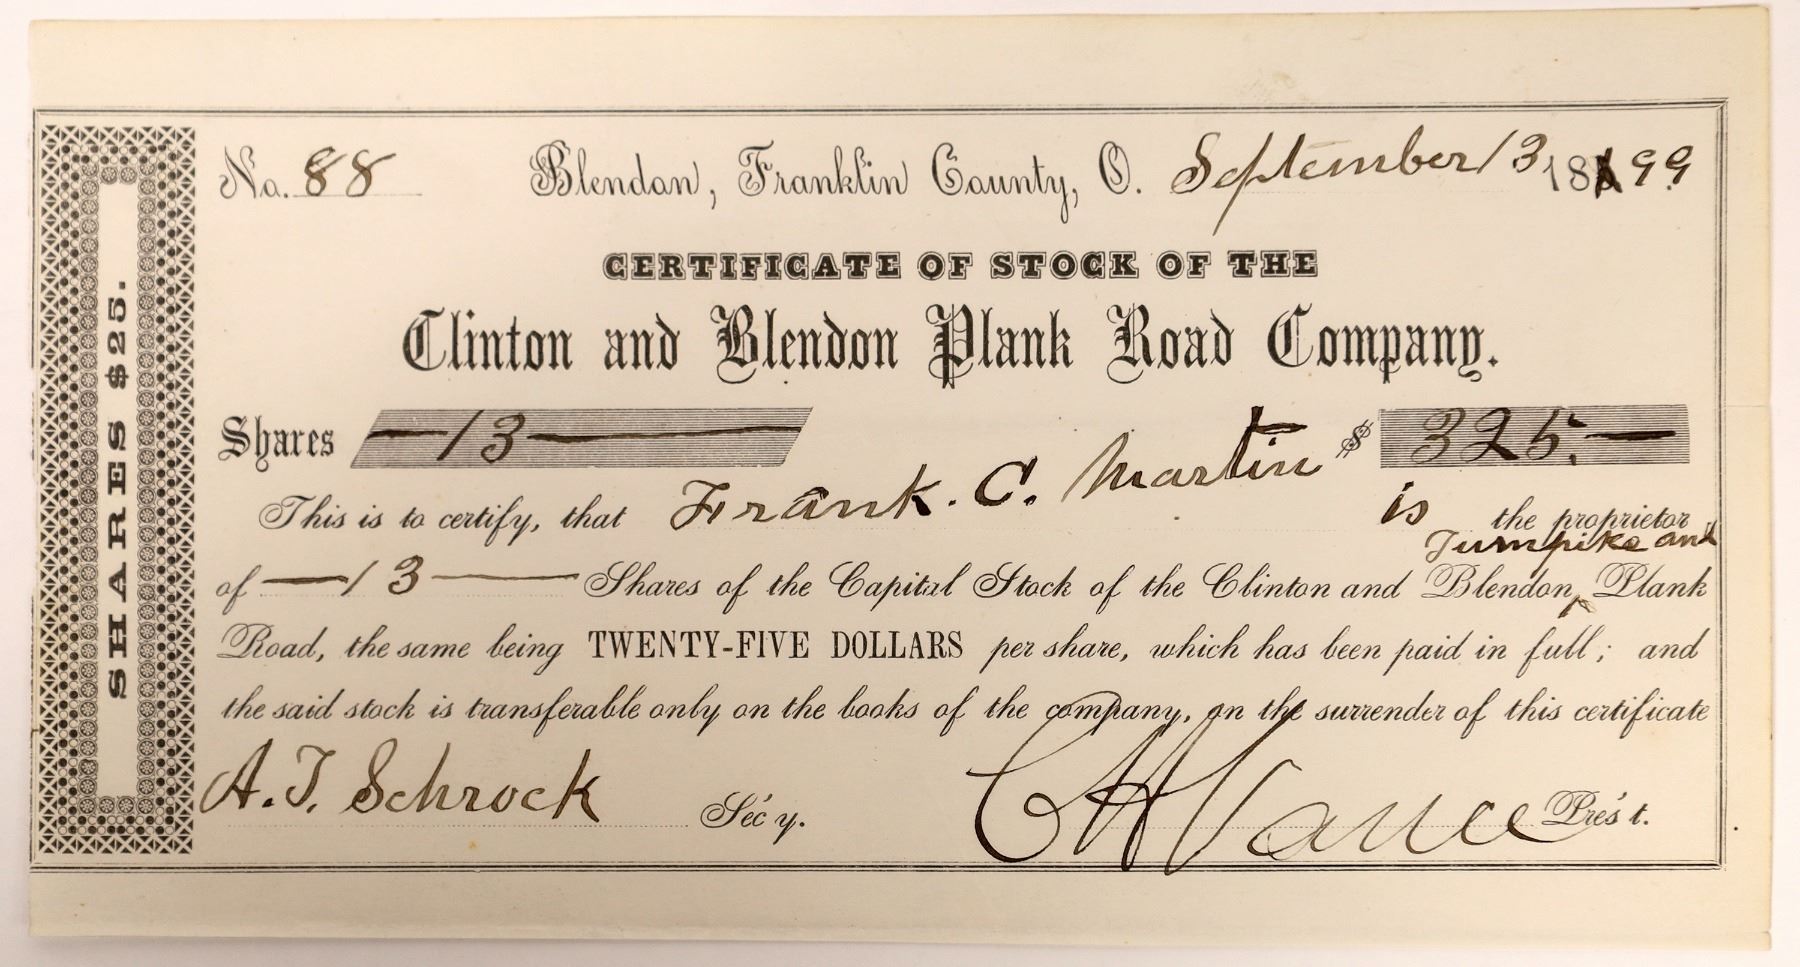 SHARES $25.
No. 88 Blendon, Franklin County, O. September 13, 18 99
CERTIFICATE OF STOCK OF THE
Clinton and Blendon Plank Road Company.
Shares 13 $ 325.
This is to certify, that Frank. C. Martin is the proprietor
Turnpike and
of 13 Shares of the Capital Stock of the Clinton and Blendon, Plank
Road, the same being TWENTY-FIVE DOLLARS per share, which has been paid in full; and
the said stock is transferable only on the books of the company, on the surrender of this certificate
A. T. Schrock Sec'y. C H Vance Pres't.